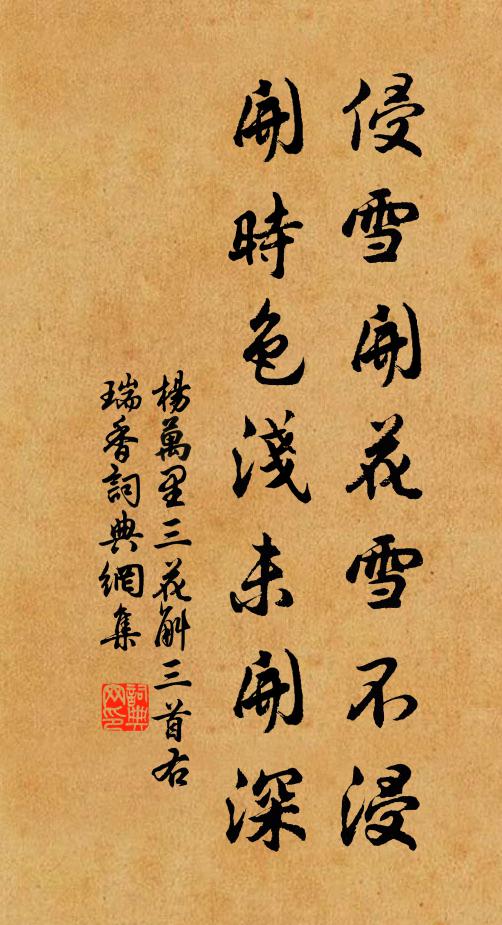 侵雪開花雪不浸
開時色淺未開深
楊萬里三花斛三首右
瑞香詞典網集
詞典网印